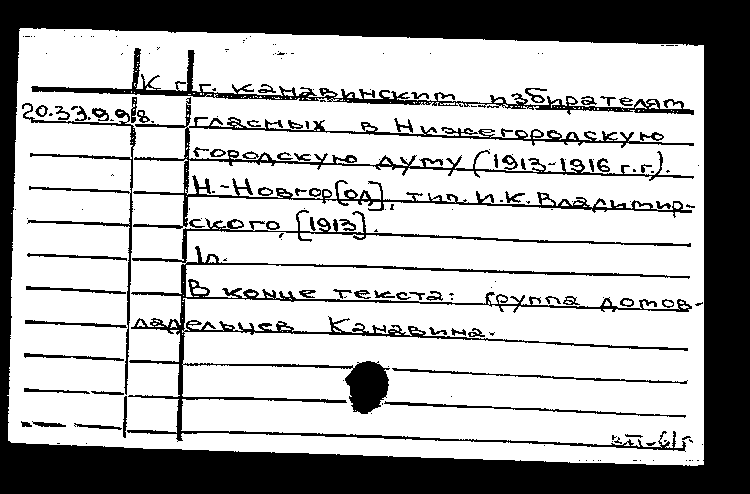 К г.г. канавинским избирателям
20.37.9.98. гласных в Нижегородскую
городскую думу (1913-1916 г.г.).
Н.-Новгор[од], тип. И.К. Владимир-
ского, [1913].
1л.
В конце текста: группа домов-
ладельцев Канавина.